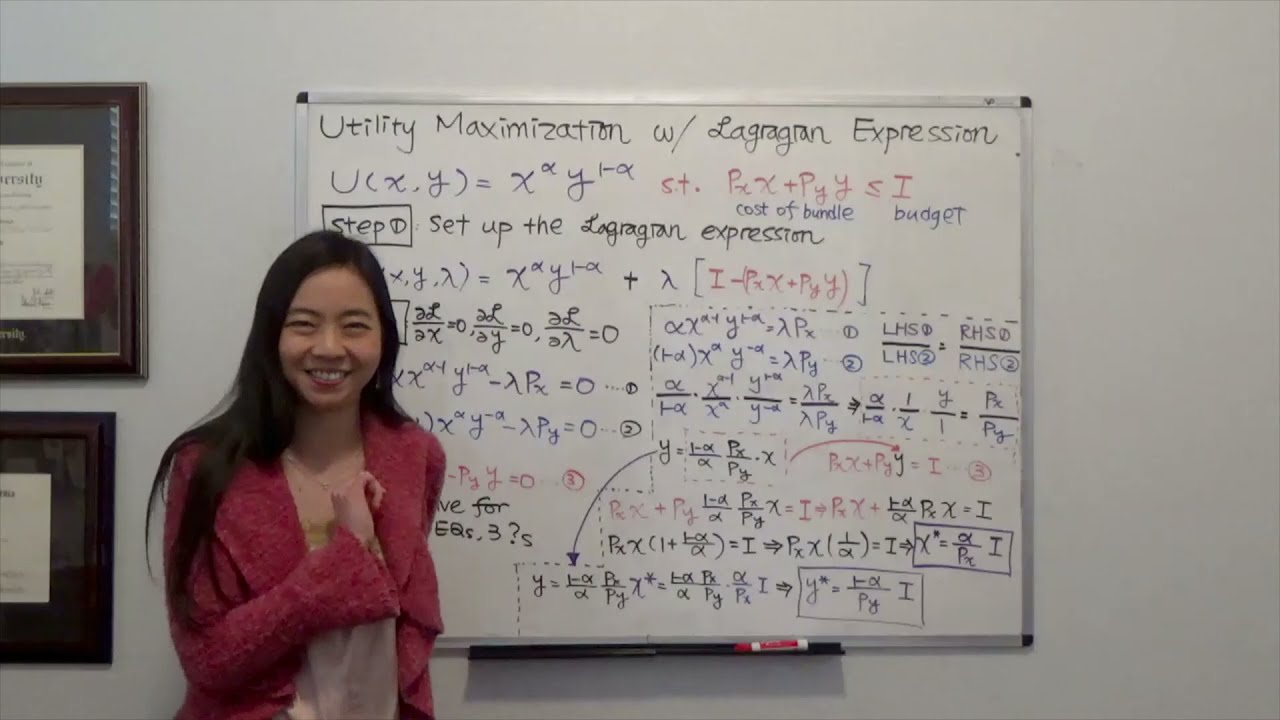 Utility Maximization w/ Lagragian Expression
U(x,y) = x^α y^{1-α} s.t. Pₓx + P_y y ≤ I
cost of bundle budget
Step ① : Set up the Lagragian expression
x,y,λ) = x^α y^{1-α} + λ [I-(Pₓx+P_y y)]
∂ℒ/∂x=0, ∂ℒ/∂y=0, ∂ℒ/∂λ=0
x^{α-1} y^{1-α} - λPₓ = 0 ····· ①
) x^α y^{-α} - λP_y = 0 ··· ②
- P_y y = 0 ③
ve for
EQs, 3 ?s
αx^{α-1} y^{1-α} = λPₓ ①
(1-α)x^α y^{-α} = λP_y ··· ②
LHS① / LHS② = RHS① / RHS②
α/(1-α) · x^{α-1}/x^α · y^{1-α}/y^{-α} = λPₓ/λP_y ⇒ α/(1-α) · 1/x · y/1 = Pₓ/P_y
y = (1-α)/α Pₓ/P_y · x
Pₓx + P_y y = I ··· ③
Pₓx + P_y (1-α)/α Pₓ/P_y x = I ⇒ Pₓx + (1-α)/α Pₓx = I
Pₓx(1 + (1-α)/α) = I ⇒ Pₓx(1/α) = I ⇒ x* = α/Pₓ I
y = (1-α)/α Pₓ/P_y x* = (1-α)/α Pₓ/P_y · α/Pₓ I ⇒ y* = (1-α)/P_y I
ersity
ersity